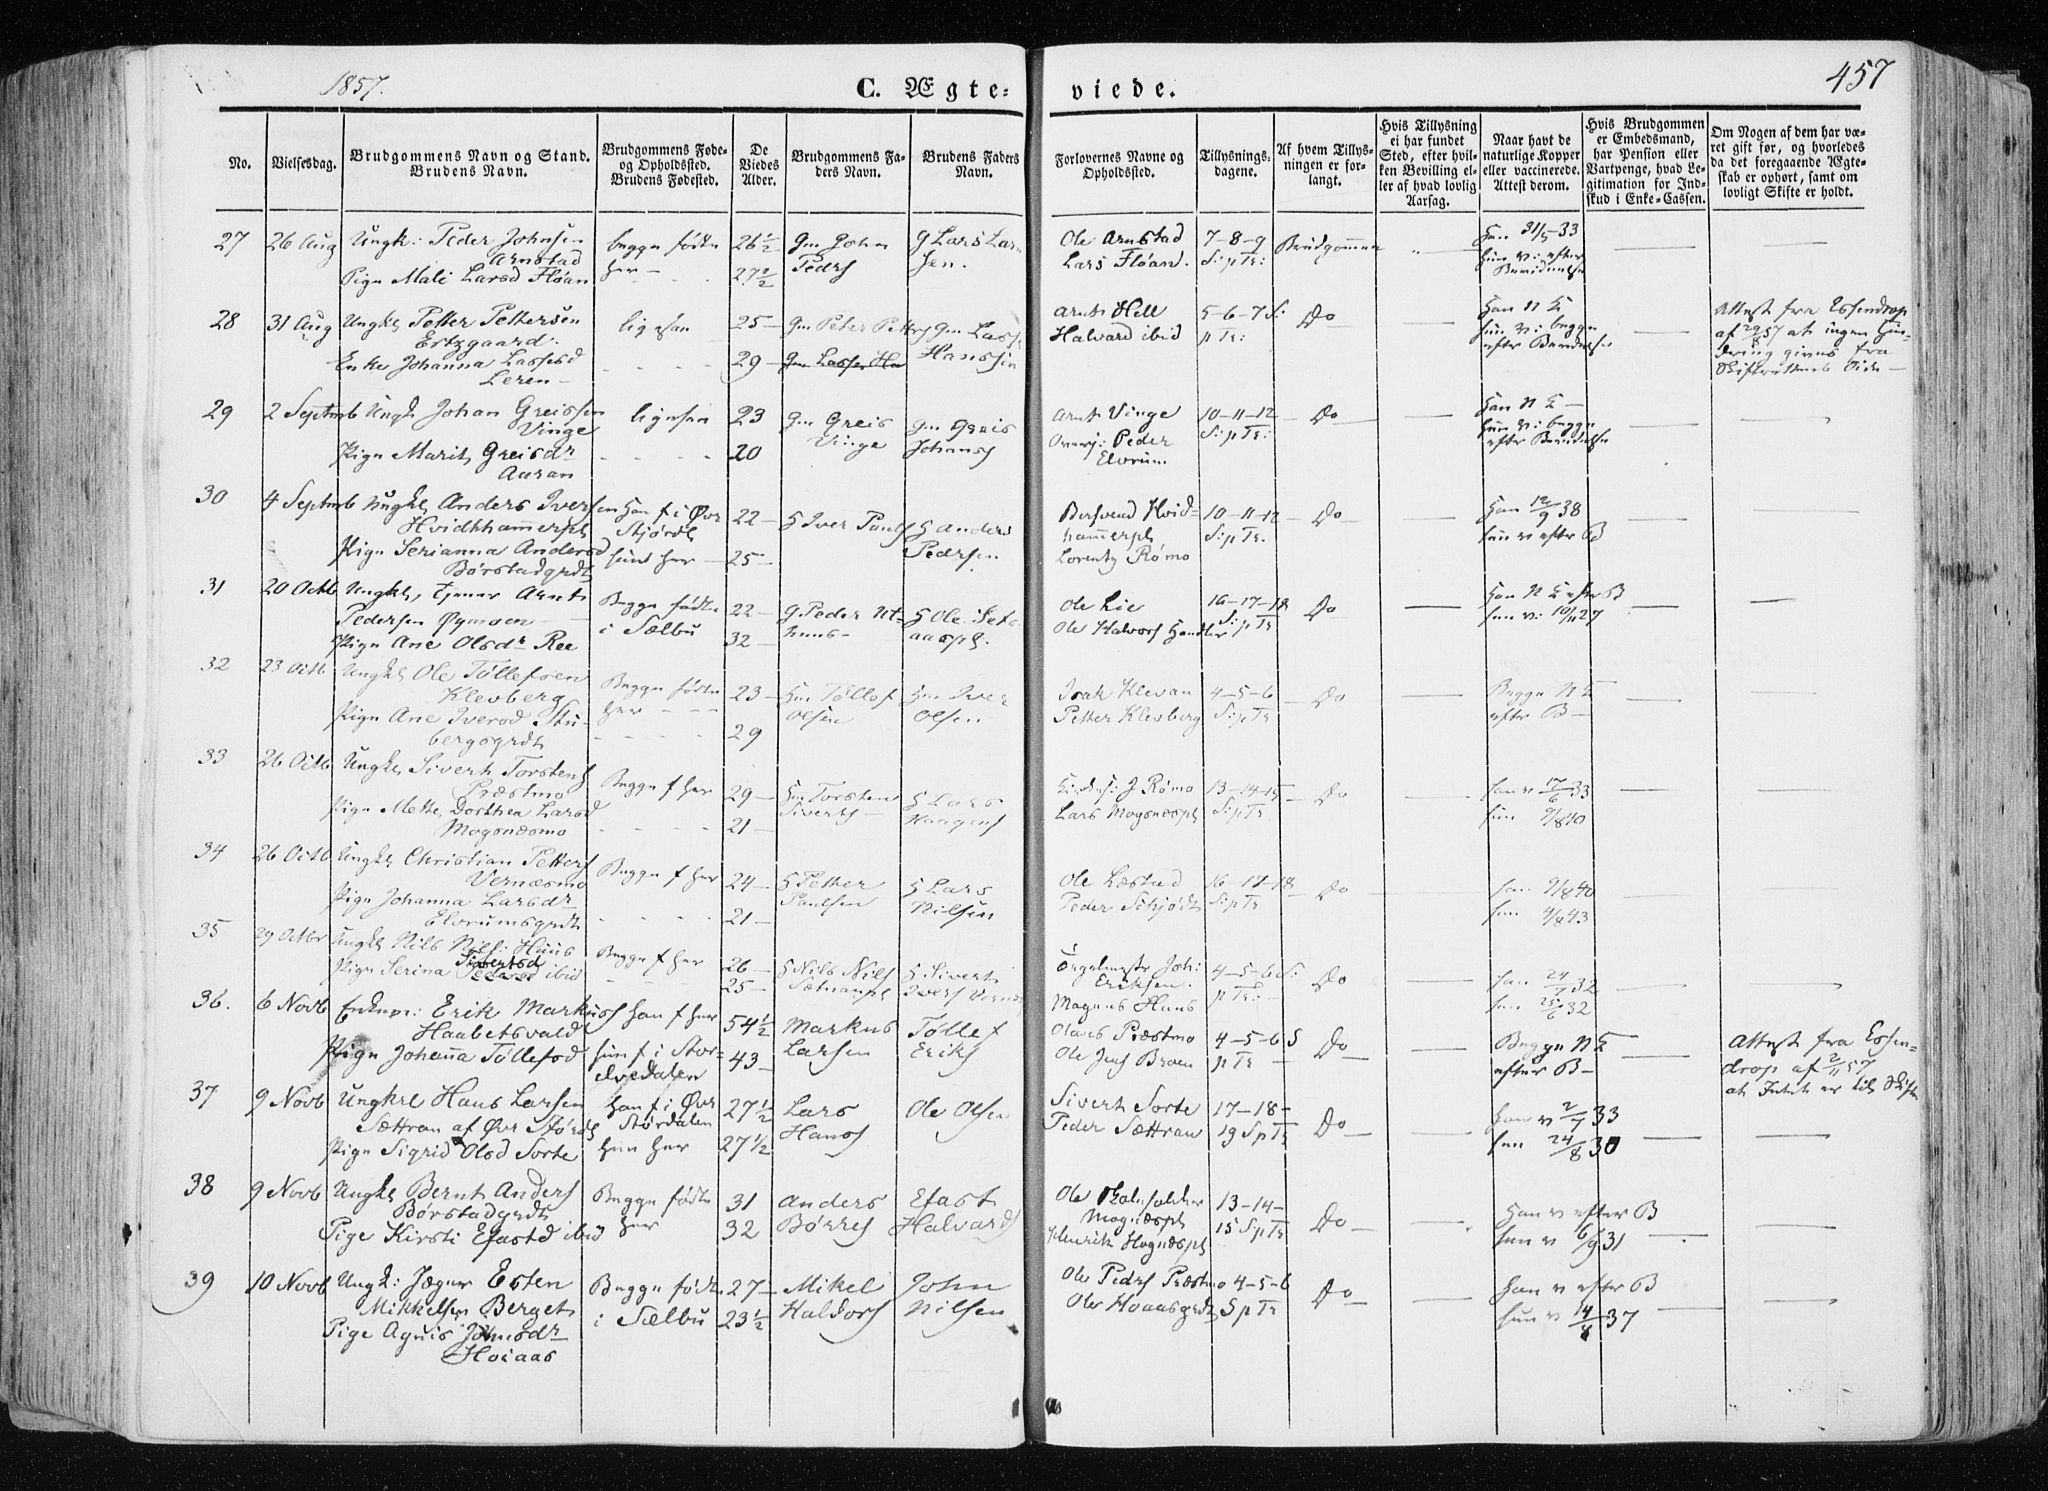 1857.
C. Ægte=
viede.
457
No.
Vielsesdag.
Brudgommens Navn og Stand.
Brudens Navn.
Brudgommens Føde=
og Opholdssted.
Brudens Fødested.
De
Viedes
Alder.
Brudgommens Fa=
ders Navn.
Brudens Faders
Navn.
Forlovernes Navne og
Opholdssted.
Tillysnings=
dagene.
Af hvem Tillys=
ningen er for=
langt.
Hvis Tillysning
ei har fundet
Sted, efter hvil=
ken Bevilling el=
ler af hvad lovlig
Aarsag.
Naar havt de
naturlige Kopper
eller vaccinerede.
Attest derom.
Hvis Brudgommen
er Embedsmand,
har Pension eller
Vartpenge, hvad Le=
gitimation for Ind=
skud i Enke=Cassen.
Om Nogen af dem har væ=
ret gift før, og hvorledes
da det foregaaende Ægte=
skab er ophørt, samt om
lovligt Skifte er holdt.
27 26 Aug Ungk: Peder Johnsen
Arnstad
Pige Mali Larsd Fløan
begge fødte
her —
26½
27½
Gm John
Peders
G Lars Lar
sen.
Ole Arnstad
Lars Fløan.
7-8-9
S: p Tr:
Brudgommen
Han 31/5 33
hun v: efter
28 31 Aug Ungk Petter Pettersen
Ertzgaard.
Enke Johanna Lassesd
Leren —
ligesaa
25 —
29 —
Gm Peter Petters
Gm Lasse
Hansen
Arnt Hell
Halvard ibid
5-6-7 S:
p Tr:
Do
Han N E
hun v: begge
efter
Attest fra Essendrop
af 29/8 57 at ingen Hin=
dring gives fra
Skifterettens Side —
29 2 Septmb Ungk Johan Greissen
Vinge
Pige Marit Greisdr
Aaran
ligesaa
23
20
Gm Greis
Vinge
Gm Greis
Johans
Arnt Vinge
Peder
Elvrum.
10-11-12
S: p Tr:
Do
Han N E —
hun v: begge
efter
30 4 Septmb Ungk Anders Iversen
Hvidhammerpl
Pige Serianna Andersd
Børstadgrdt
Han f i Øvr
Stjørd
hun her —
22 —
25 —
H Iver Pauls
H Anders
Pedersen
Bersvend Hvid=
hammerpl
Lorentz Rømo
10-11-12
S: p Tr.
Do
Han 12/9 38
hun v efter B
31 20 Octb Ungk, Tjener Arnt
Pedersen Øymoen
Pige Ane Olsdr Ree
Begge fødte
i Sælbu
22 —
32 —
G Peder Ut=
huus —
H Ole Set=
aaspl.
Ole Lie
Ole Halvors
16-17-18
S: p Tr
Do
Han N E efter B
hun v: 10/11 27
32 23 Octb Ungk Ole Tøllefsen
Klevberg
Pige Ane Iversd Stu=
bergsgrdt
Begge fødte
her —
23 —
29
Gm Tøllef
Olsen
Gm Iver
Olsen
Isak Klevan
Petter Klevberg
4-5-6
S: p Tr
Do
Begge N E
efter B —
33 26 Octb Ungk Sivert Torstens
Præstmo
Pige Mette Dorthea Larsd
Mogsnæsmo
Begge f her
29 —
21 —
Gm Torsten
Siverts —
H Lars
Haagens
J Rømo
Lars Mogsnæspl
13-14-15
S: p Tr
Do
han v 17/6 33
hun 9/8 40
34 26 Octb Ungk Christian Petters
Vernæsmo
Pige Johanna Larsdr
Elvrumsgrdt
Begge f her
24 —
21 —
H Petter
Paulsen
H Lars
Nilsen
Ole Læstad
Peder Schjødt
16-17-18
S: p Tr
Do
han 9/8 40
hun 4/8 43
35 29 Octbr Ungk Nils Nils: Huus
Pige Serina Sivertsd ibid
Begge f her
26 —
25 —
H Nils Nils
H Sivert
Ivers
Joh:
Eriksen.
Magnus Huus
4-5-6 S:
p Tr: —
Do
han 24/7 32
hun 25/6 32
36. 6 Novb Enkem: Erik Markus
Haabetsvald
Pige Johanna Tøllefsd
Han f her
hun f i Stor=
elvedalen
54½
43 —
Markus
Larsen
Tøllef
Eriks
Olaus Præstmo
Ole Jens Broen
4-5-6 S
p Tr —
Do
Begge N E
efter B —
Attest fra Essen=
drop af 2/11 57
at Intet er til Skifte
37 9 Novb Ungkrl Hans Larsen
Sættran af Øvr Størd
Pige Sigrid Olsd Sorte
Han f i Øvr
Størdalen
hun her
27½
27½
Lars
Hans
Ole Olsen
Sivert Sorte
Peder Sættran
17-18-
19 S p Tr
Do
han v 2/7 33
hun 24/8 30
38 9 Novb Ungk Bernt Anders
Børstadgrdt
Pige Kirsti Efastd ibid
Begge fødte
her
31
32
Anders
Børres
Efast
Halvards
Ole
Mognæspl
Henrik Hognæspl
13-14-
15 S p Tr
Do
Han v efter B
hun v 6/9 31
39 10 Novb Ungk: Jæger Esten
Mikkelsen Berget
Pige Agnis Johnsdr
Hoiaas
Begge fødte
i Sælbu
27 —
23½
Mikel
Haldors
John
Nilsen
Ole Peders Præstmo
Ole Hoaasgrdt
4-5-6
S p Tr
Do
han v efter B
hun v 14/8 37